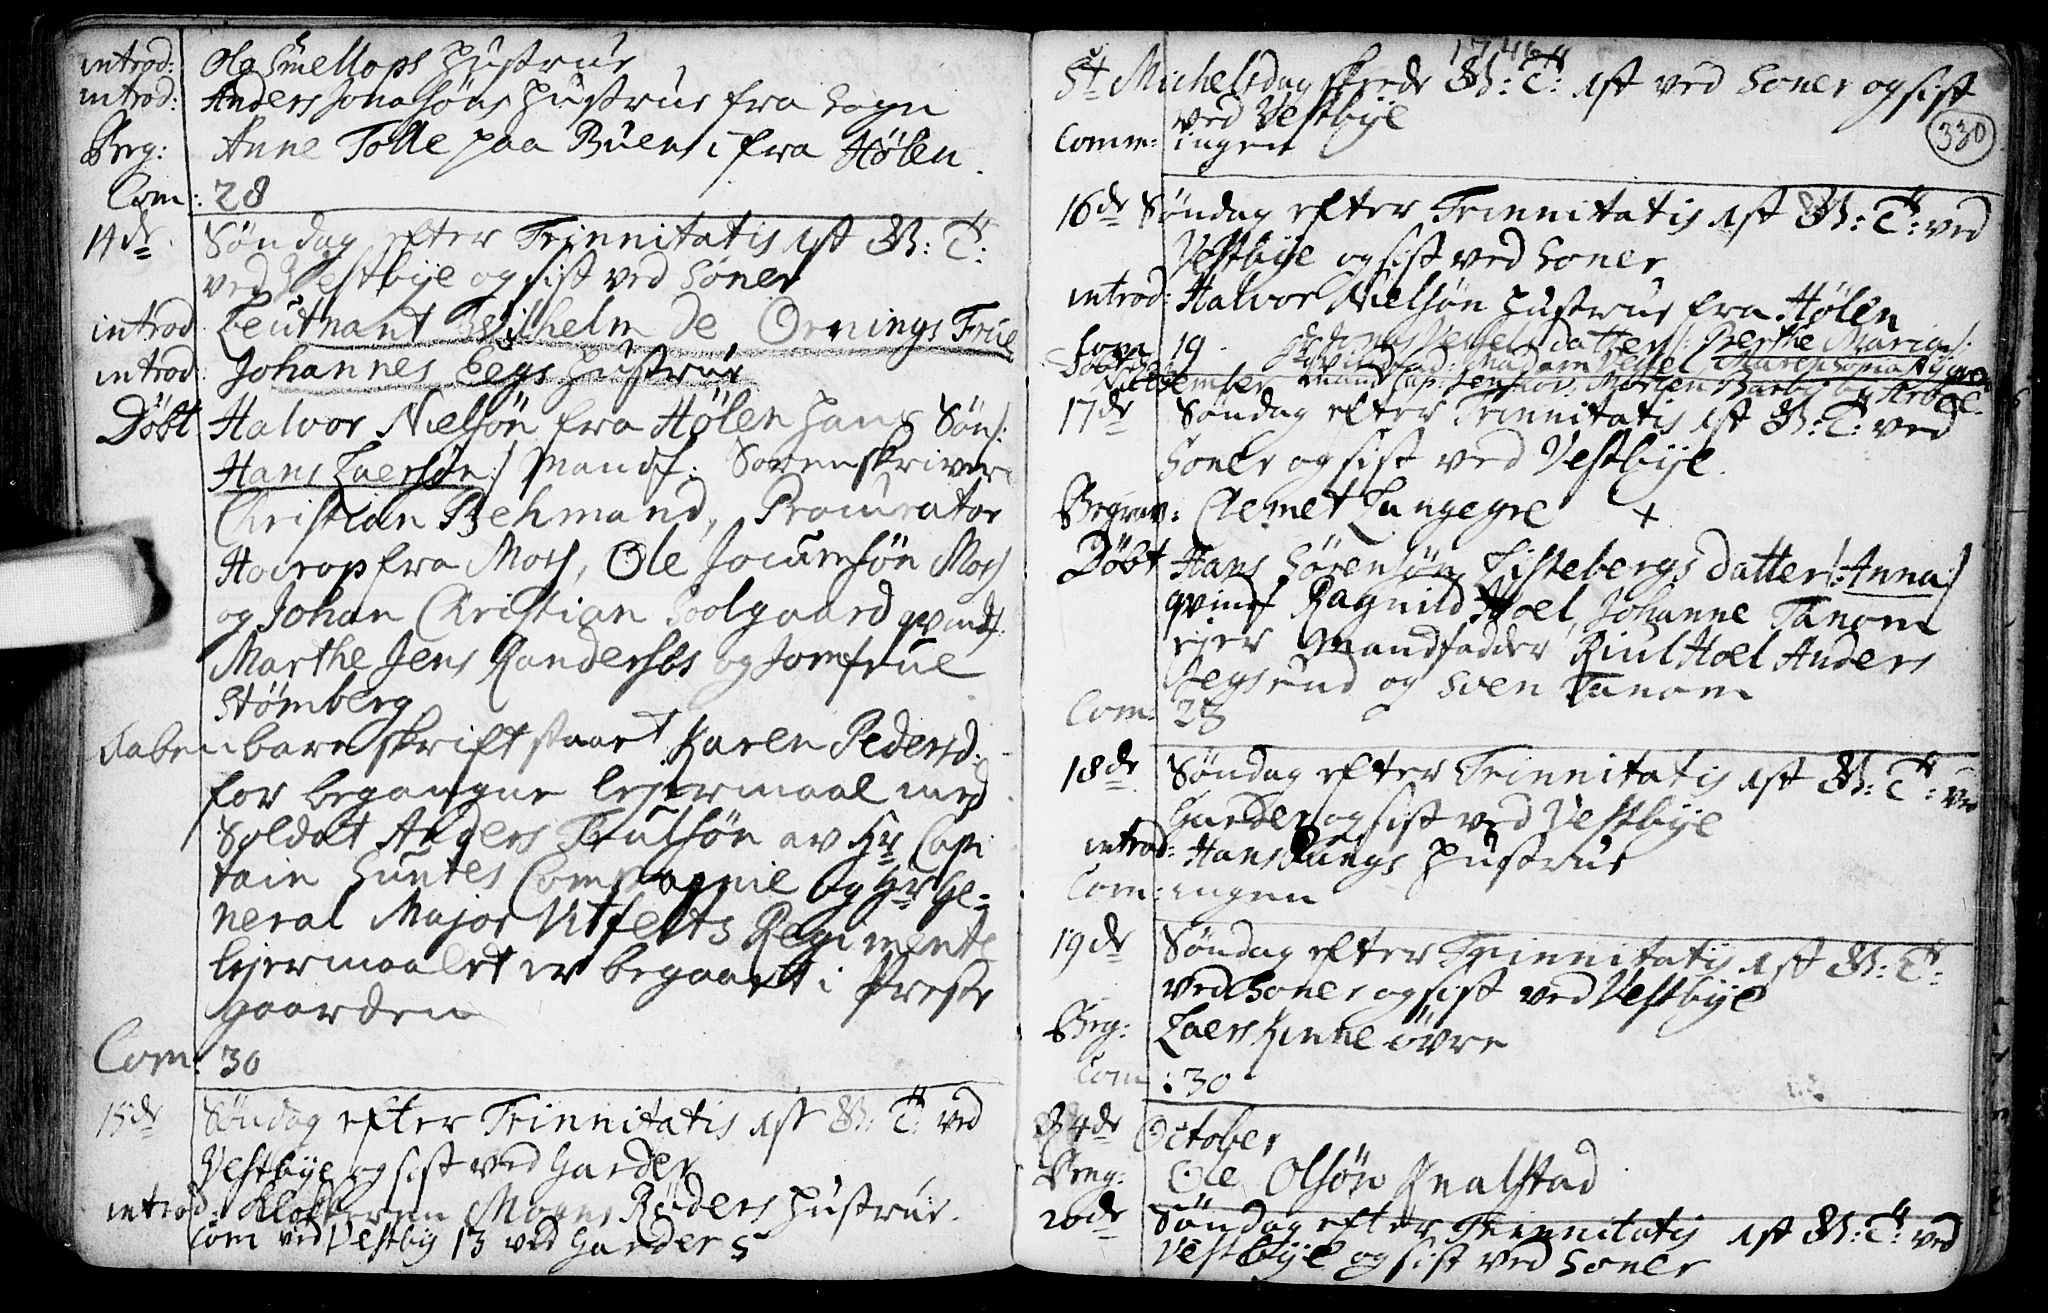 introd: Ole Smellops Hustrue
introd: Anders Jonasøns Hustrue fra Sogn
Beg: Anne Tolle paa Buen i fra Hølen.
Com: 28
14de Søndag efter Trinnitatis 1st G: T:
ved Vestbÿe og sist ved Soner
introd Leutnant Wilhelm de Ornings Frue
introd: Johannes Eegs Hustrue
Døbt Halvor Nielsøn fra Hølen hans Søn /:
Hans Laersøn :/ Mandf: Sorenskriver
Christian Behmand, Procurator
Hoirop fra Moss, Ole Jocumsøn Moss
og Johan Christian Soolgaard qvindf:
Marthe Jens Randersøs og Jomfrue
Stømberg
Aabenbare skrift staart Karen Pedersd:
for begangne lejermaal med
Soldat Anders Trulsøn av Hr Capi
tain Huntes Compagnie og Hr Ge=
neral Major Utfelts Regimente
lejermaalet er begaaet i Præste
gaarden
Com: 30
15de Søndag efter Trinnitatis 1st G: T: ved
Vestbÿe og sist ved Garder
introd: Klokkeren Mogns Røders Hustrue.
Com ved Vestby 13 ved Garder 5
1746
St Michelsdag skrede G: T: 1st ved Soner og sist
ved Vestbÿe
330
Comm: ingen
16de Søndag efter Trinnitatis 1st G: T: ved
Vestbÿe og sist ved Soner
introd: Halvor Nielsøn Hustrue fra Hølen
Com 19 datter /: Berthe Maria :/
17de Søndag efter Trinnitatis 1st G: T: ved
Soner og sist ved Vestbÿe.
Begrav: Clemet Langegre +
Døbt Hans Sørensøn Listebergs datter /: Anna :/
qvindf Ragnild Hoel, Johanne Tanom
ejer Mandfadder Riul Hoel Anders
Jegsrud og Sven Tanom
Com: 23
18de Søndag efter Trinnitatis 1st G: T: ved
Garder og sist ved Vestbÿe
introd: Hans Rungs Hustrue
Com: ingen
19de Søndag efter Trinnitatis 1st G: T:
ved Soner og sist ved Vestbÿe
Beg: Laers Kinne övre
Com: 30
24de October
Beng: Ole Olsøn Qvalstad
20de Søndag efter Trinnitatis 1st G: T: ved
Vestbÿe og sist ved Soner